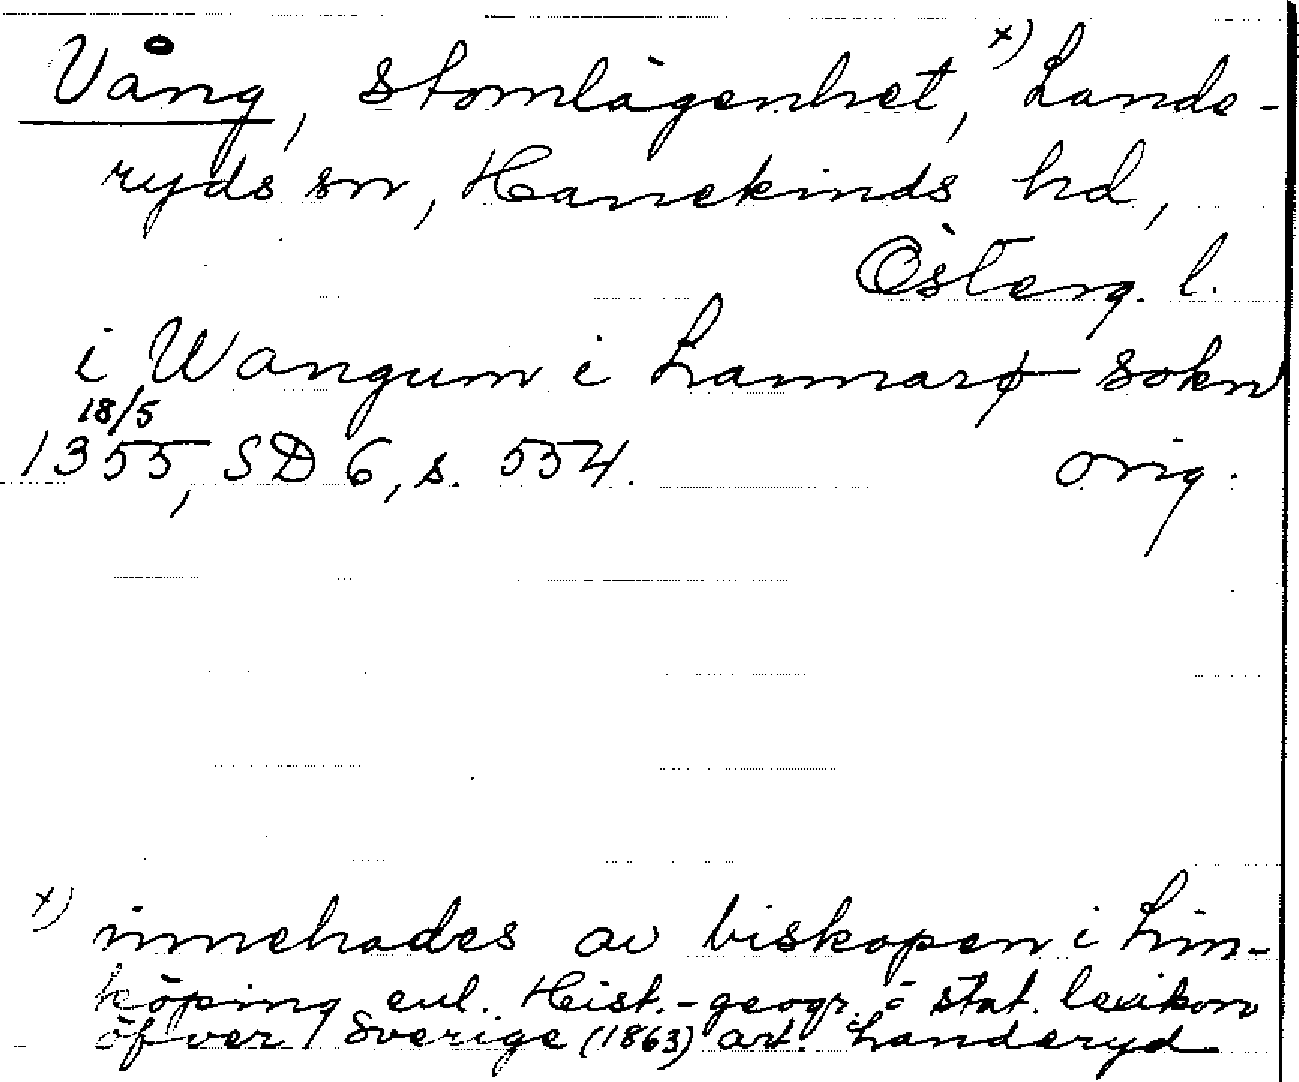 Vång, stomlägenhet, x) Lande-
ryds sn, Hanekinds hd,
Österg. l.
i Wangum i Lannarø sokn
18/5
1355, SD 6, s. 554. orig.
x) innehades av biskopen i Lin-
köping enl. Hist.-geogr. o stat. lexikon
öfver Sverige (1863) art. Landeryd